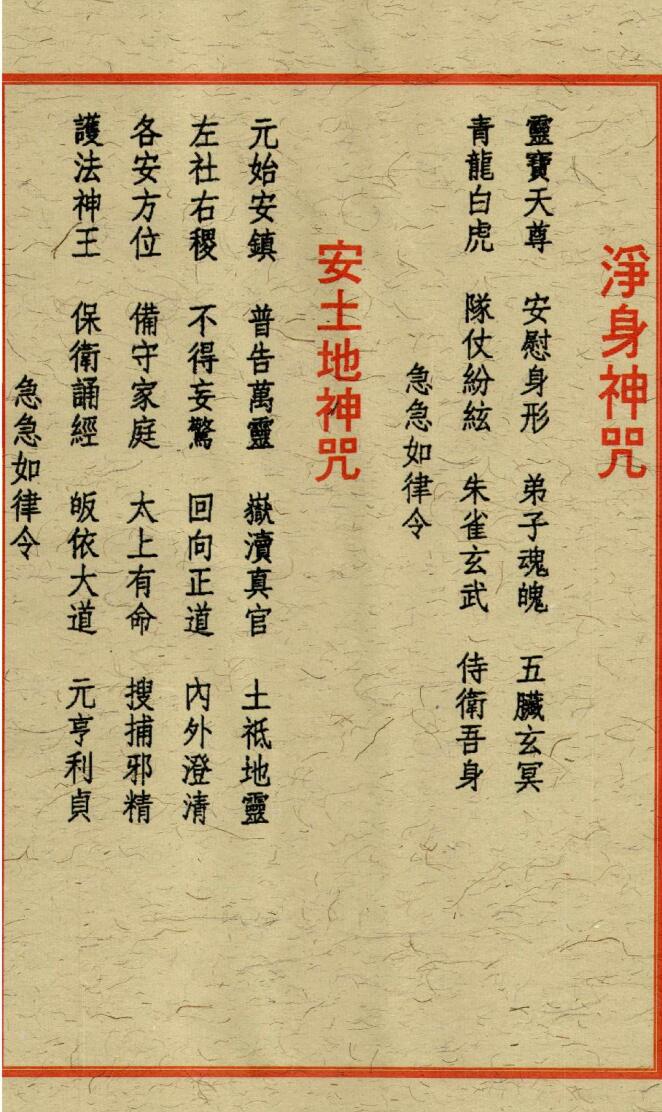 淨身神咒
靈寶天尊 安慰身形 弟子魂魄 五臟玄冥
青龍白虎 隊仗紛紜 朱雀玄武 侍衛吾身
急急如律令
安土地神咒
元始安鎮 普告萬靈 嶽瀆真官 土祗地靈
左社右稷 不得妄驚 回向正道 內外澄清
各安方位 備守家庭 太上有命 搜捕邪精
護法神王 保衛誦經 皈依大道 元亨利貞
急急如律令